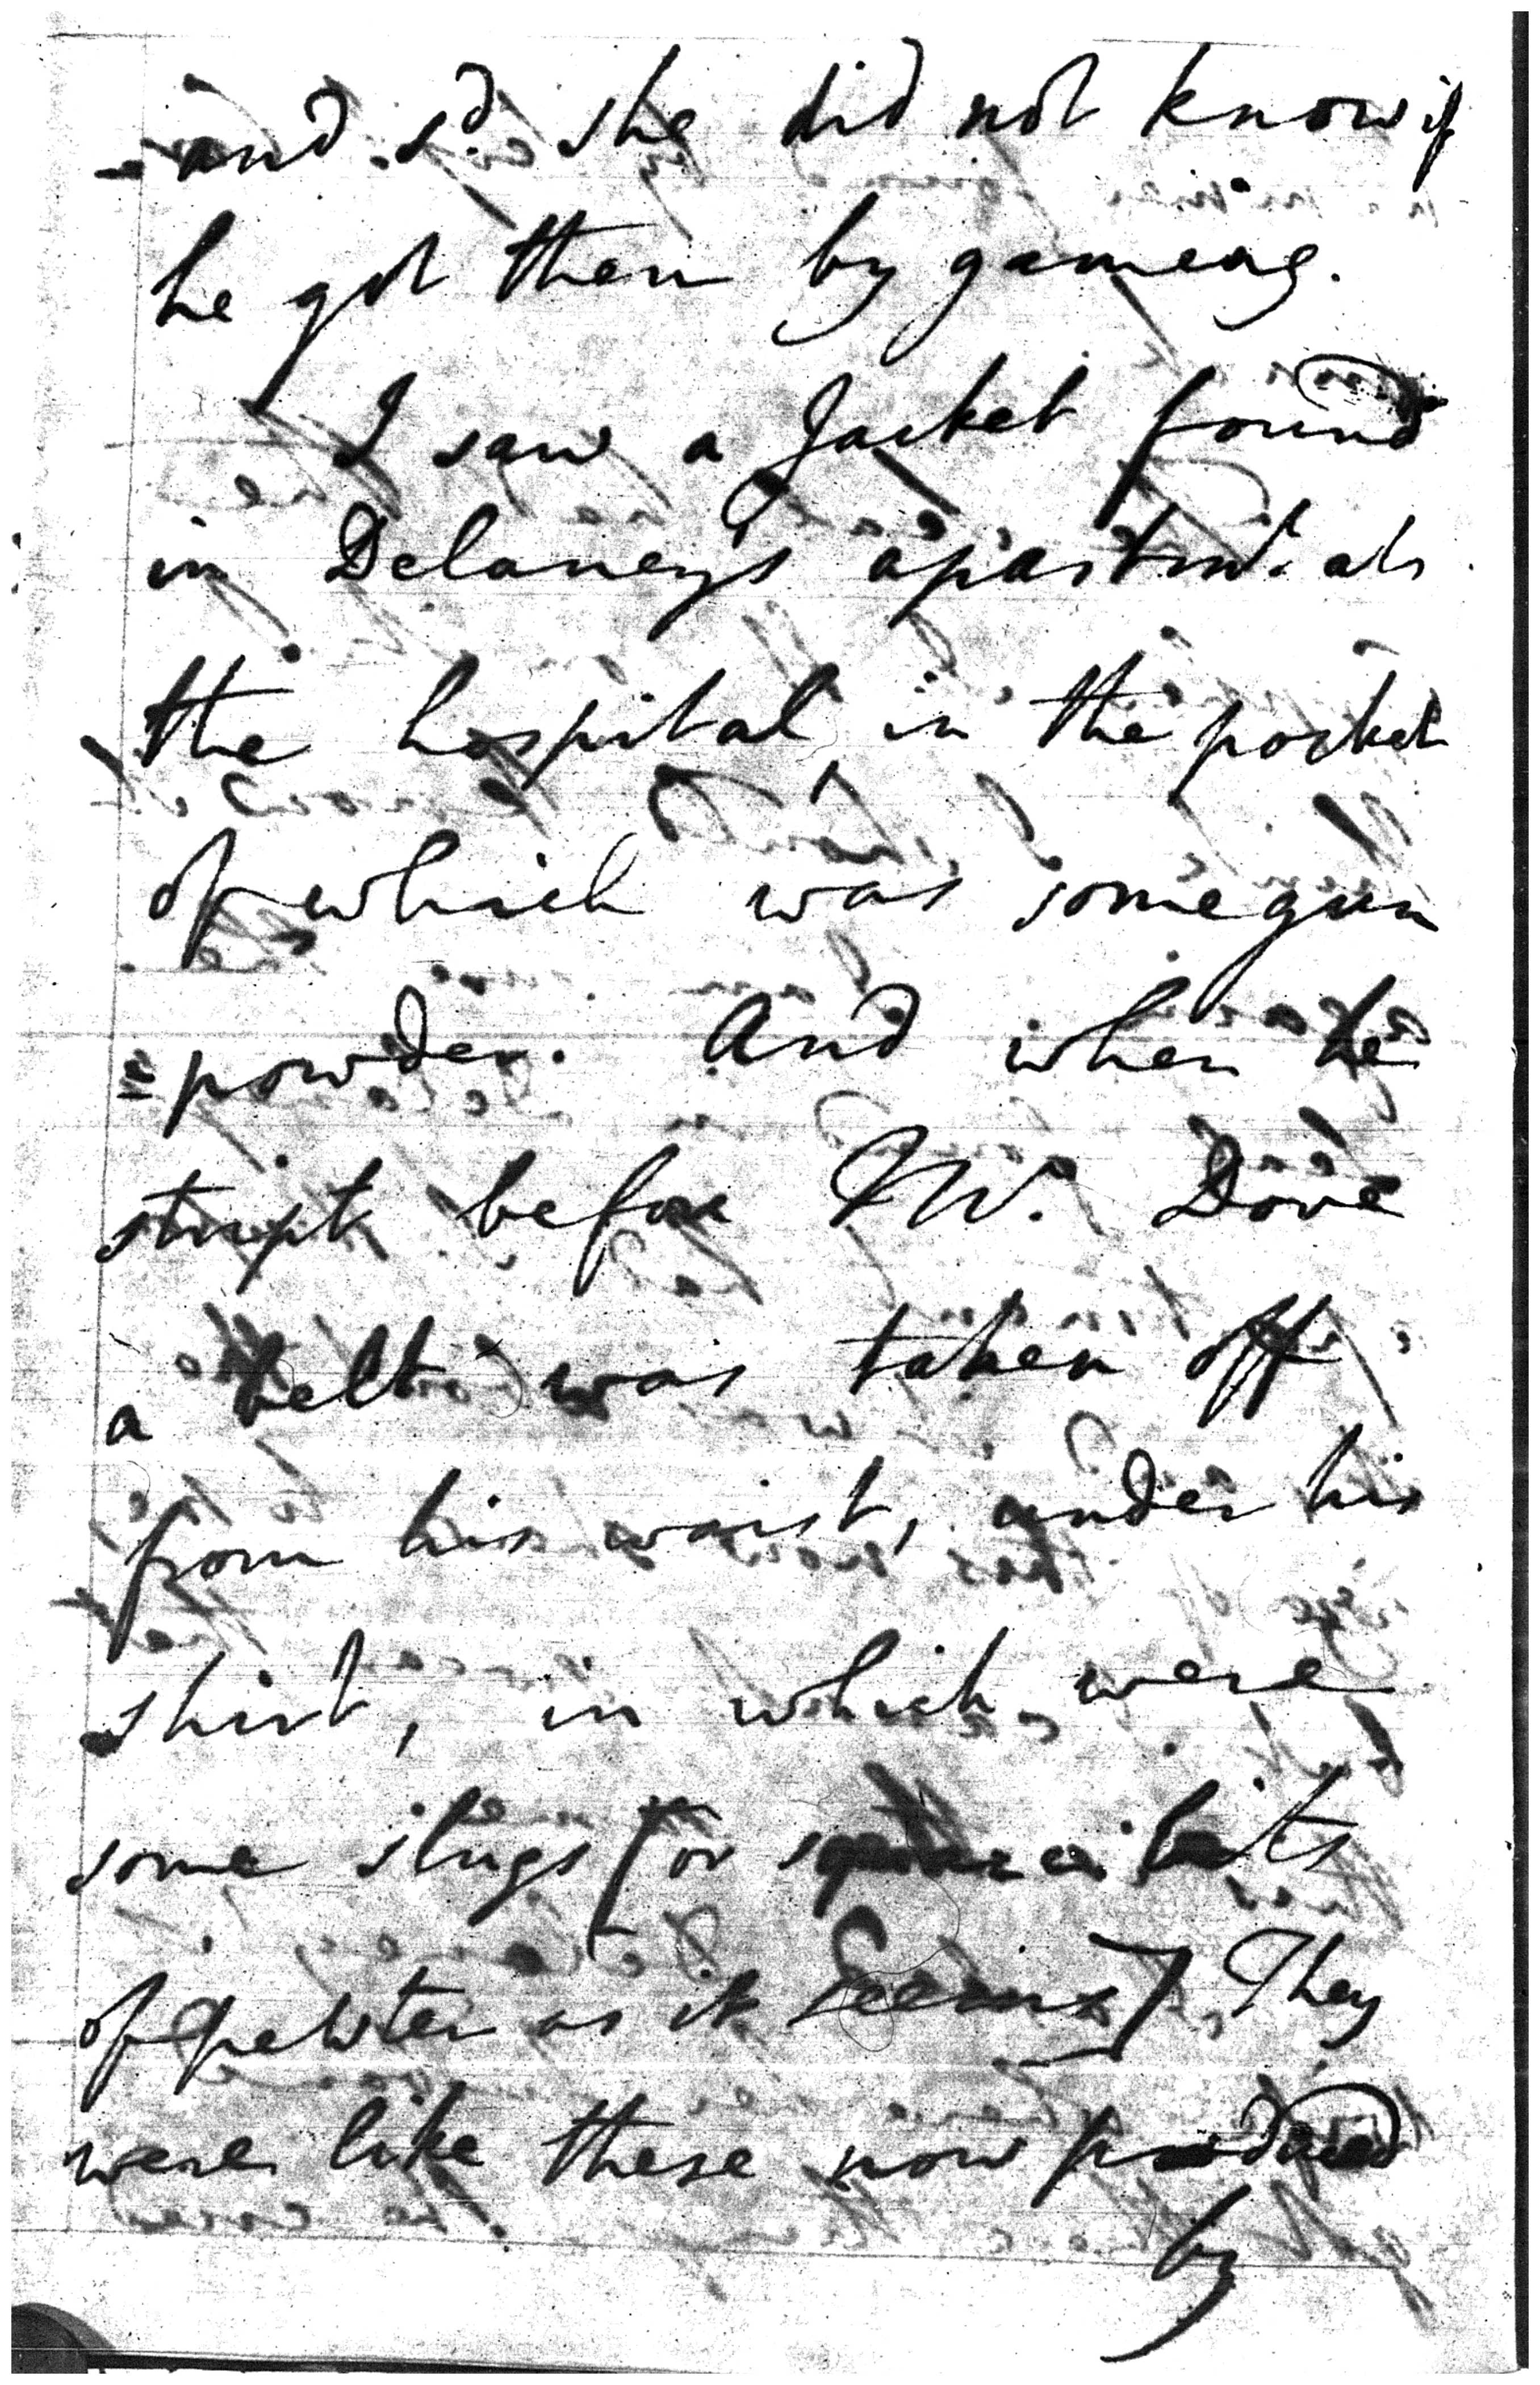 and sd. she did not know if
he got them by gameing.
I saw a Jacket found
in Delaney's apartmt. at
the hospital in the pocket
of which was some gun
= powder. And when he
stript before Mr. Dore
a belt was taken off
from his waist, under his
shirt, in which were
some slugs (or bits
of pewter as it seems) They
were like these now produced
by